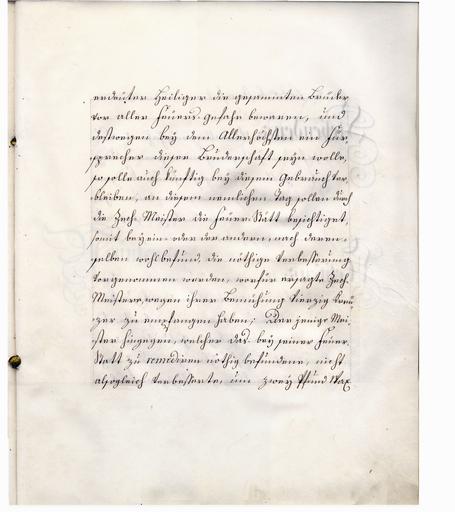 erdeuter Heiliger die gesammten Bruder
vor aller Feuers-gefahr bewaren, und
destwegen bey dem Allerhöchsten ein Für,
sprecher dieser Bruderschaft seyn wolle,
so solle auch künftig bey diesem Gebrauch ver,
bleiben, an diesem nemlichen Tag sollen durch
die Zech-Meister die Feuer-Stätt besichtiget,
somit bey ein- oder der andern, nach deren-
selben wohlbefund, die nöthige Verbesserung
vorgenommen werden, wofür ersagte Zech-
Meistere, wegen ihrer Bemühung Vierzig Kreu
zer zu empfangen haben; Der jenige Mei,
ster hingegen, welcher das bey seiner Feuer
Statt zu remediren nöthig befundene, nicht
alsogleich verbesserte, um zwey Pfund Wax